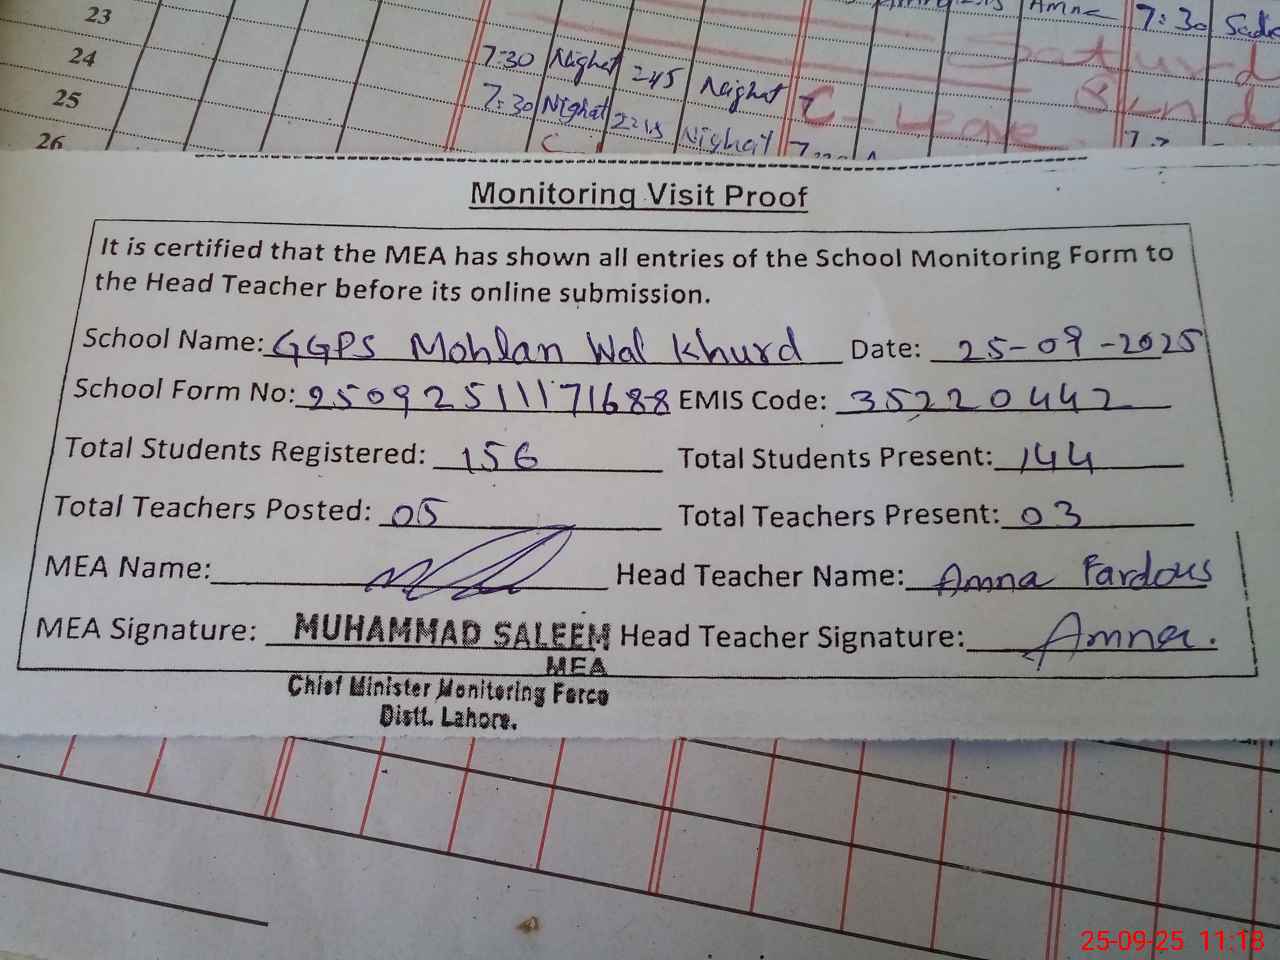 23 Amna 7:30
24 7:30 Nighat 245 Nighat
25 7:30 Nighat 2245 Nighat C - Leave
26
Monitoring Visit Proof
It is certified that the MEA has shown all entries of the School Monitoring Form to
the Head Teacher before its online submission.
School Name: GGPS Mohlan Wal Khurd Date: 25-09-2025
School Form No: 250925111171688 EMIS Code: 35220442
Total Students Registered: 156 Total Students Present: 144
Total Teachers Posted: 05 Total Teachers Present: 03
MEA Name: Head Teacher Name: Amna Fardous
MEA Signature: MUHAMMAD SALEEM Head Teacher Signature: Amna.
MEA
Chief Minister Monitoring Force
Distt. Lahore.
25-09-25 11:18